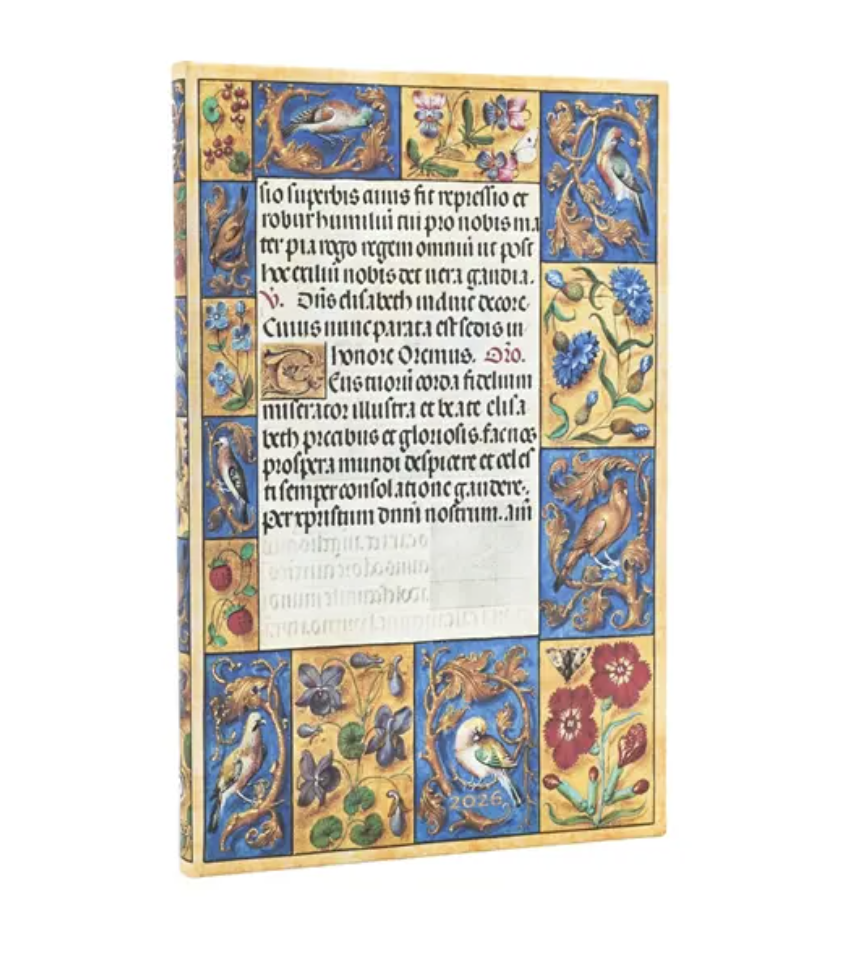 sio superbis cuius fit repressio et
robur humiliū tui pro nobis ma
ter pia rogo regem omniū ut post
hoc exiliū nobis det uera gaudia.
V. Dn̄s elisabeth induit decore
Cuius nunc parata est sedis in
honore Oremus. Orō.
DEus tuorū corda fidelium
miserator illustra et beate elisa
beth precibus et gloriosis fac nos
prospera mundi despicere et celes
ti semper consolatione gaudere.
Per xpristum dnm̄ nostrum. am̄
2026